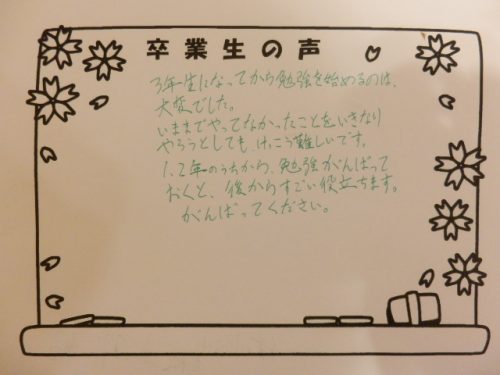 卒業生の声
3年生になってから勉強を始めるのは、
大変でした。
いままでやってなかったことをいきなり
やろうとしても、けっこう難しいです。
1、2年のうちから、勉強がんばって
おくと、後からすごい役立ちます。
がんばってください。